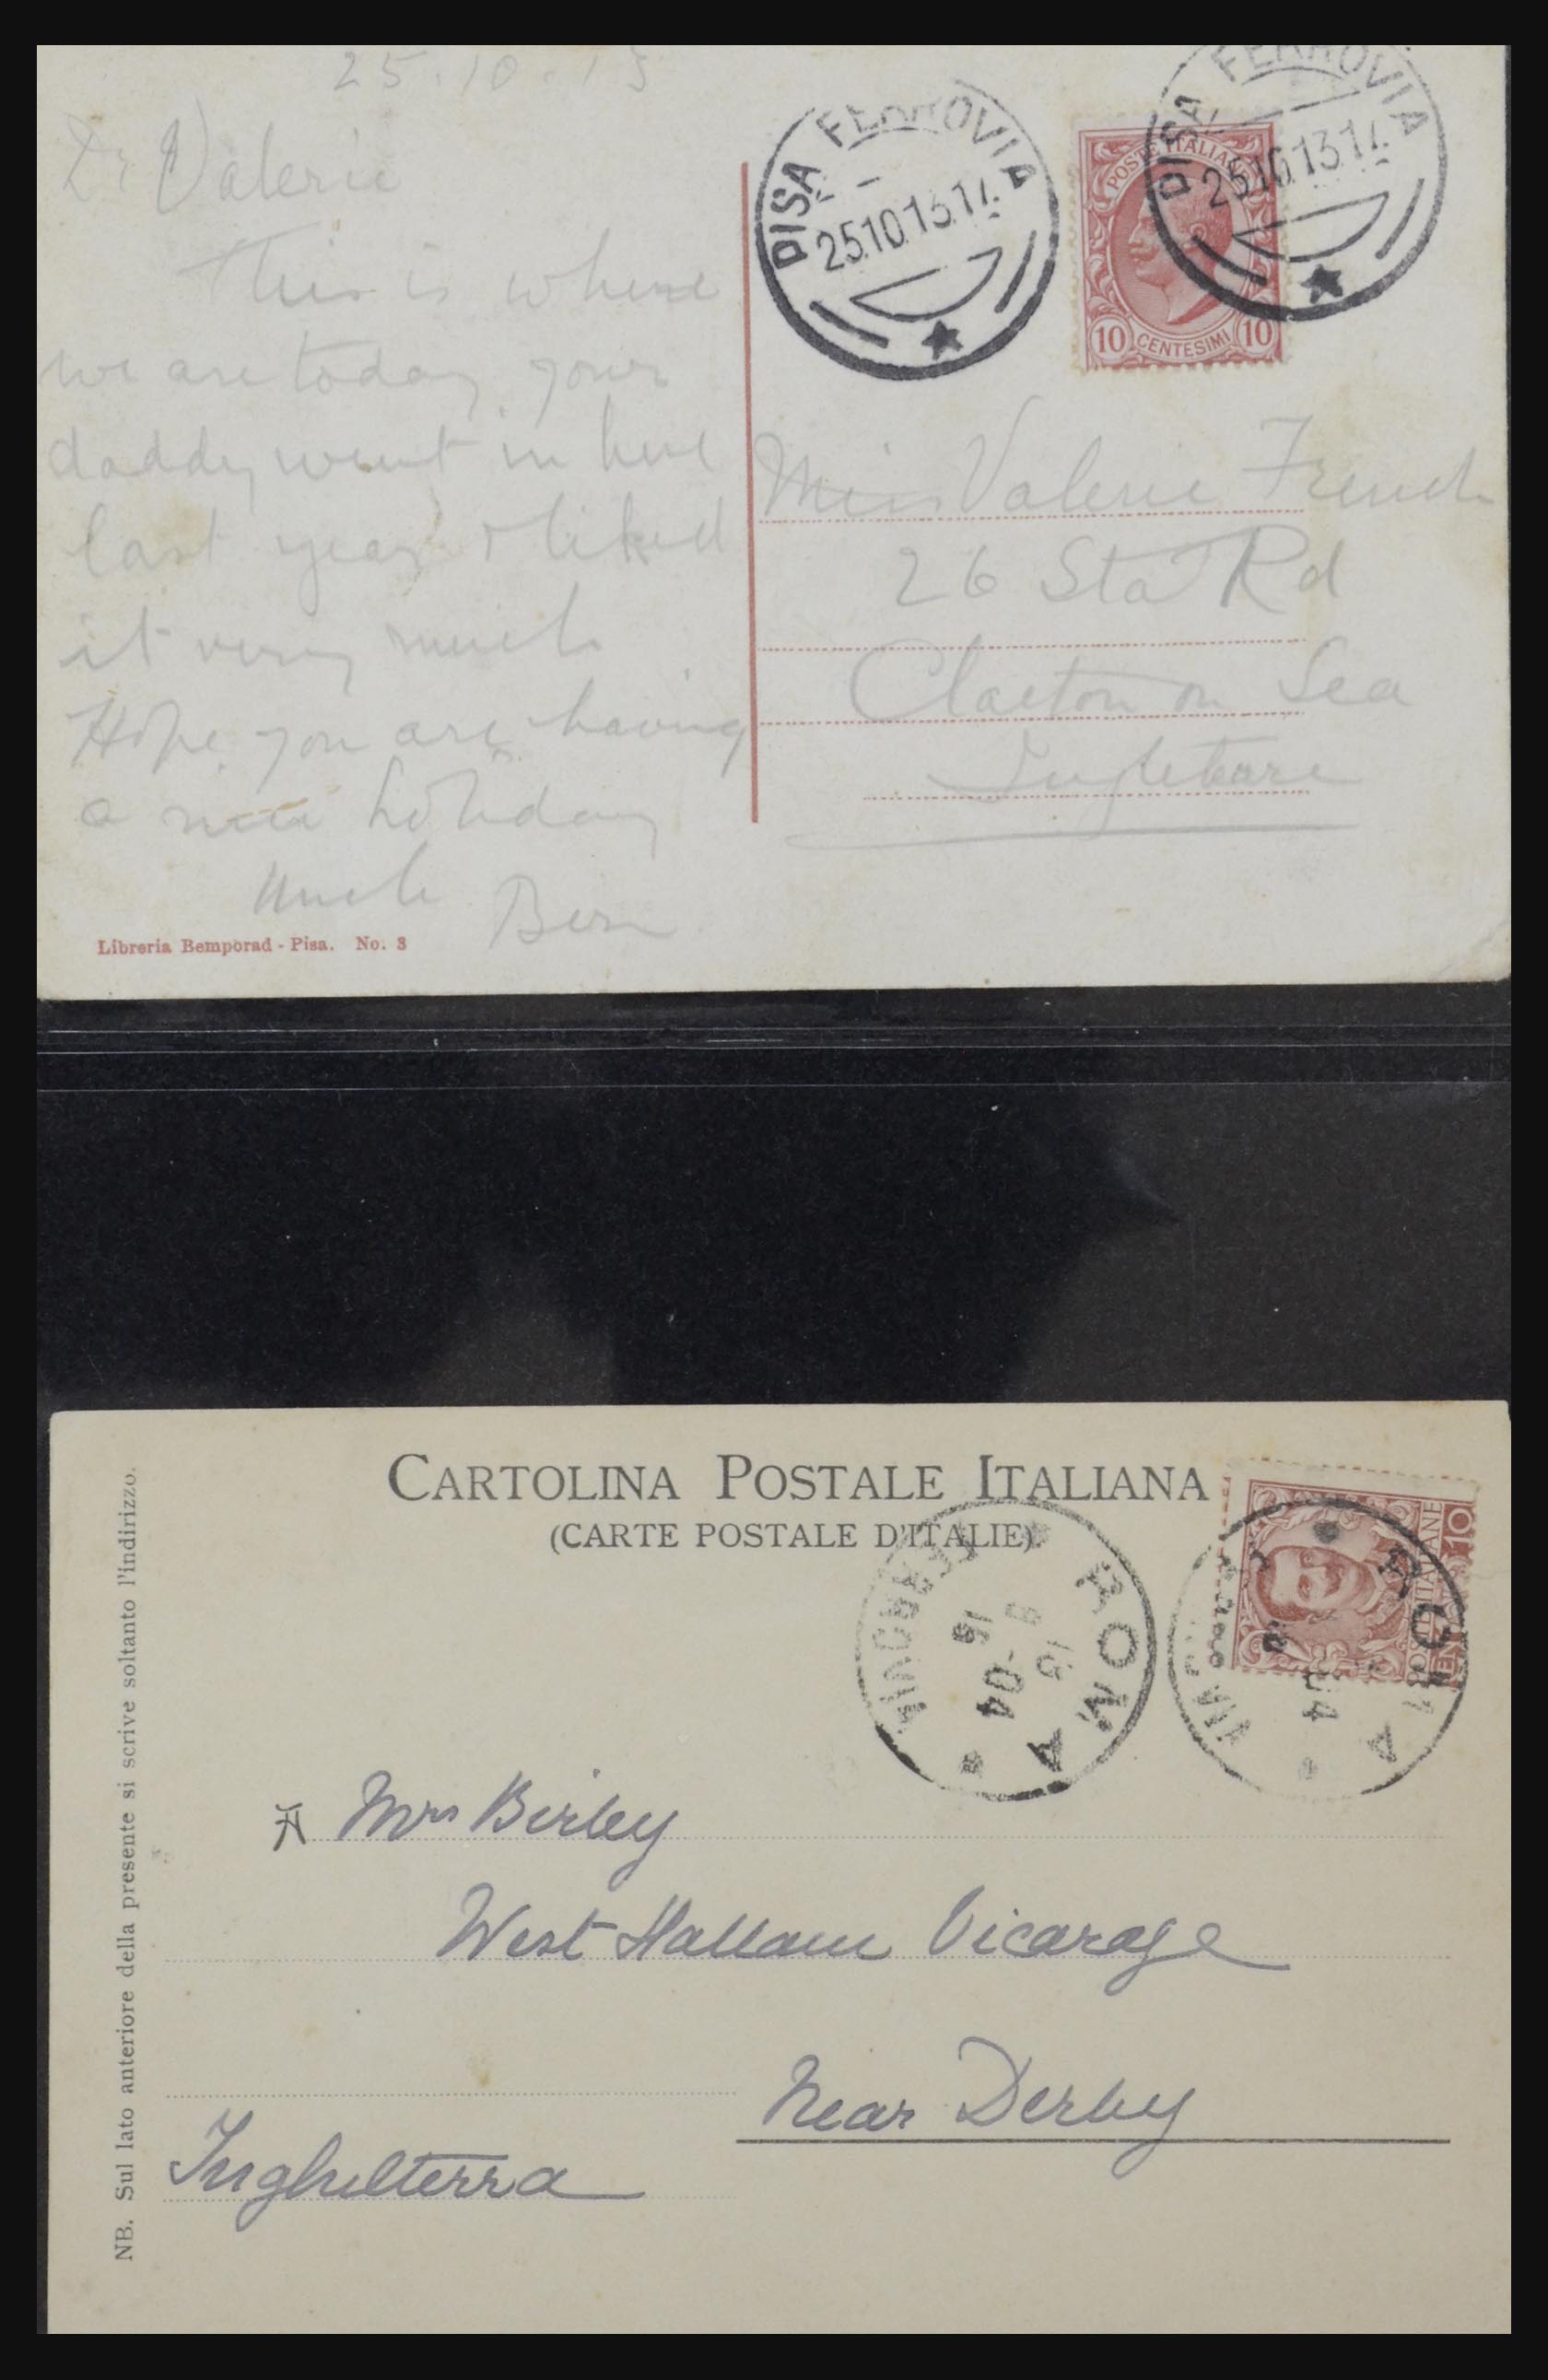 25.10.13
Dr Valerie
This is where
we are today your
daddy went in here
last year & liked
it very much
Hope you are having
a nice holiday
Uncle Bern
Libreria Bemporad - Pisa. No. 3
PISA FERROVIA
25.10.13.17.
PISA FERROVIA
25.10.13.17.
POSTE ITALIANE
10 CENTESIMI 10
Miss Valerie French
26 Sta Rd
Clacton on Sea
CARTOLINA POSTALE ITALIANA
(CARTE POSTALE D'ITALIE)
ROMA
FERROVIA
-04
POSTE ITALIANE
10
Mrs Birley
West Hallam Vicarage
Near Derby
Inghilterra
NB. Sul lato anteriore della presente si scrive soltanto l'indirizzo.